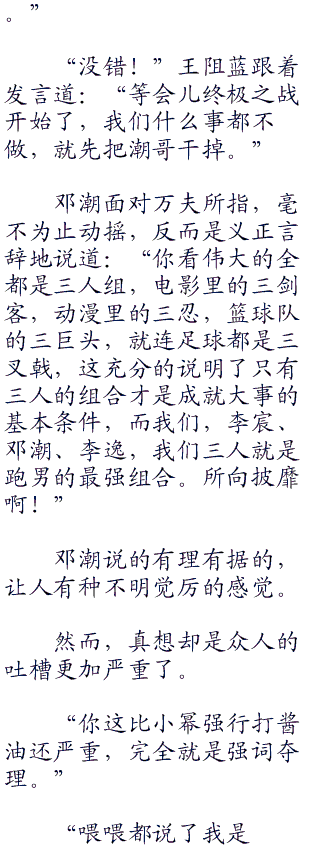 。”
“没错！”王阻蓝跟着
发言道：“等会儿终极之战
开始了，我们什么事都不
做，就先把潮哥干掉。”
邓潮面对万夫所指，毫
不为止动摇，反而是义正言
辞地说道：“你看伟大的全
都是三人组，电影里的三剑
客，动漫里的三忍，篮球队
的三巨头，就连足球都是三
叉戟，这充分的说明了只有
三人的组合才是成就大事的
基本条件，而我们，李宸、
邓潮、李逸，我们三人就是
跑男的最强组合。所向披靡
啊！”
邓潮说的有理有据的，
让人有种不明觉厉的感觉。
然而，真想却是众人的
吐槽更加严重了。
“你这比小幂强行打酱
油还严重，完全就是强词夺
理。”
“喂喂都说了我是